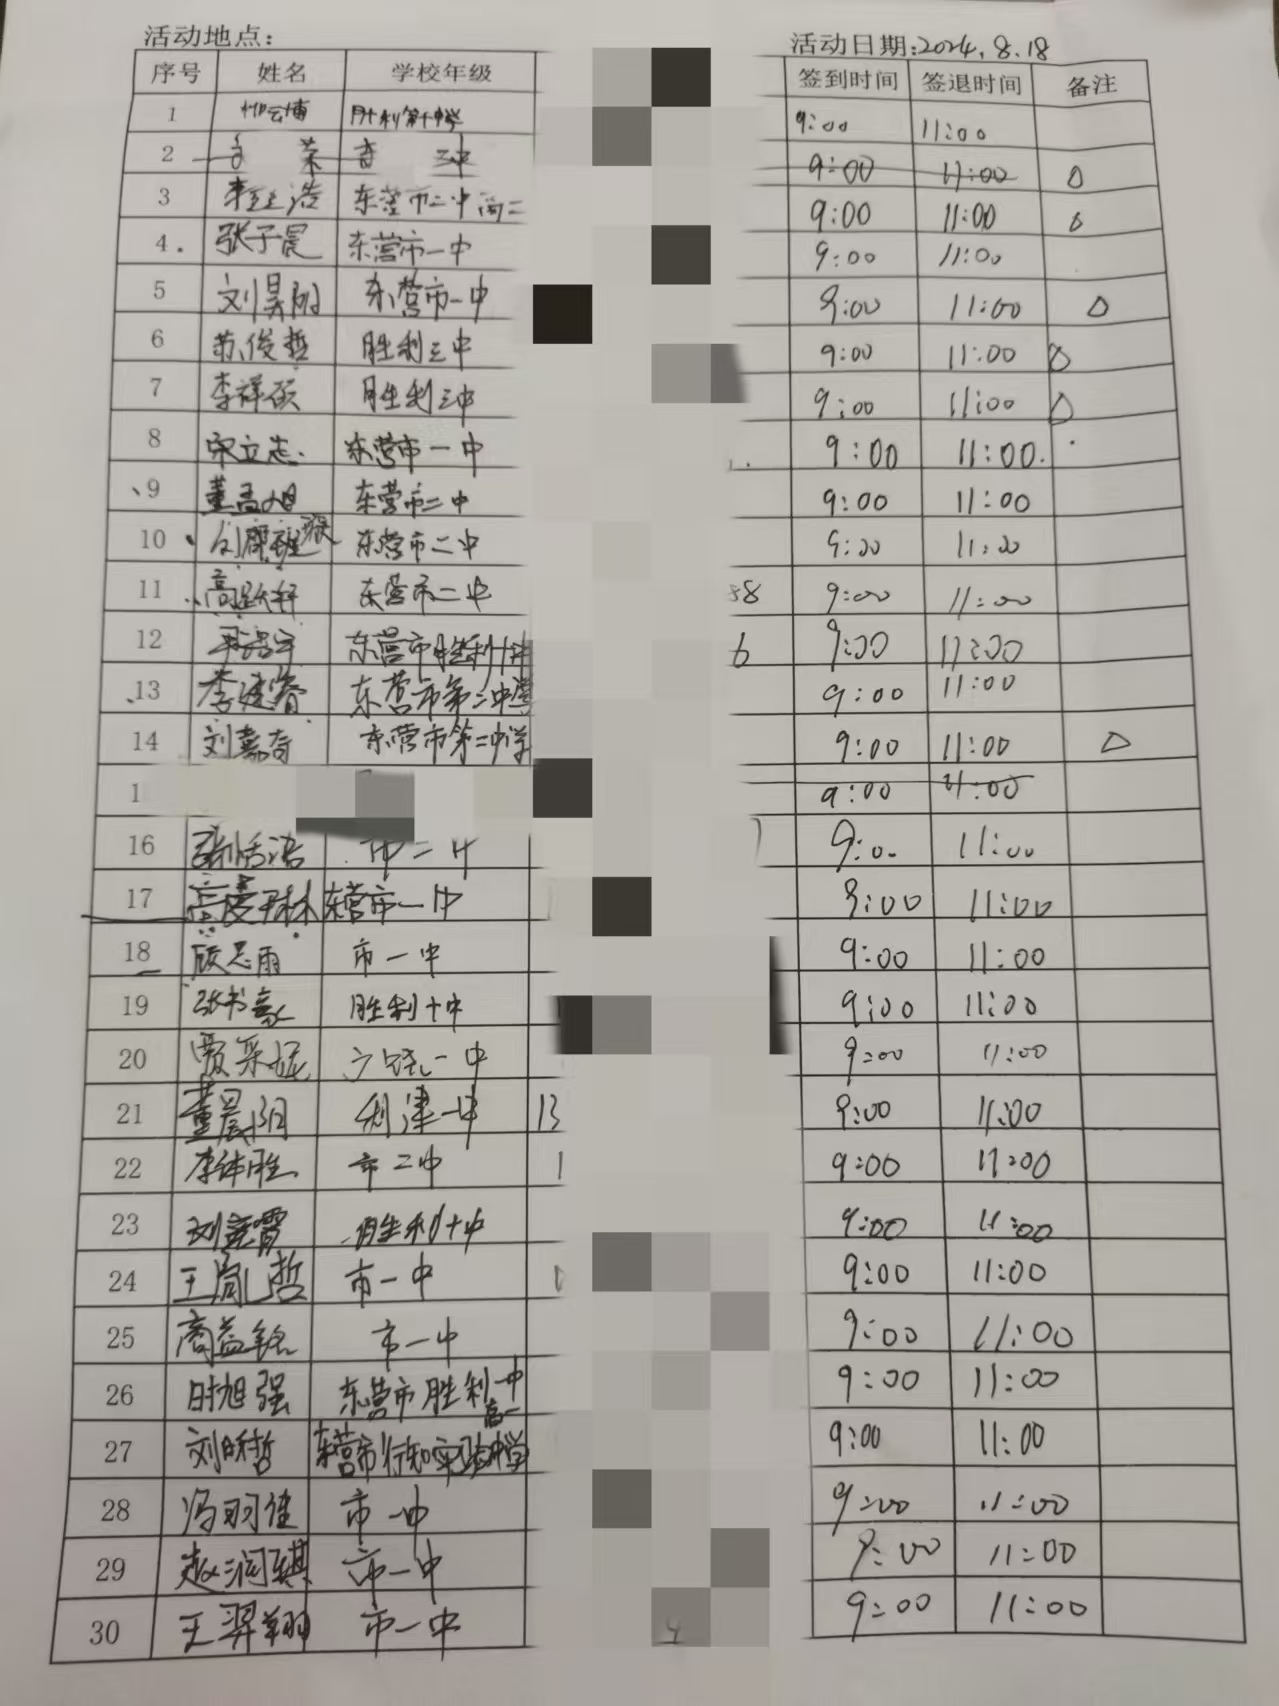 活动地点: 活动日期:2024.8.18
序号 姓名 学校年级 签到时间 签退时间 备注
1 柳云博 胜利第十中学 9:00 11:00
2 三中 9:00 11:00 △
3 李 浩 东营市二中 高二 9:00 11:00 △
4. 张子晨 东营市一中 9:00 11:00
5 刘昊阳 东营市一中 9:00 11:00 △
6 苏俊哲 胜利三中 9:00 11:00 △
7 李祥硕 胜利三中 9:00 11:00 △
8 宋立志 东营市一中 9:00 11:00.
9 董孟旭 东营市二中 9:00 11:00
10 东营市二中 9:00 11:00
11 高跃轩 东营市二中 58 9:00 11:00
12 东营市胜利十中 6 9:00 11:00
13 李建睿 东营市第二中学 9:00 11:00
14 刘嘉奇 东营市第二中学 9:00 11:00 △
1 9:00 11:00
16 9:00 11:00
17 东营市一中 9:00 11:00
18 顾思雨 市一中 9:00 11:00
19 张书豪 胜利十中 9:00 11:00
20 贾采 广饶一中 9:00 11:00
21 董晨阳 利津一中 13 9:00 11:00
22 李 胜 市二中 1 9:00 11:00
23 刘 霄 胜利十中 9:00 11:00
24 王胤哲 市一中 9:00 11:00
25 商益铭 市一中 9:00 11:00
26 时旭强 东营市胜利一中 高一 9:00 11:00
27 刘昕哲 东营市行知实验中学 9:00 11:00
28 冯羽佳 市一中 9:00 11:00
29 赵润琪 市一中 9:00 11:00
30 王羿翔 市一中 9:00 11:00